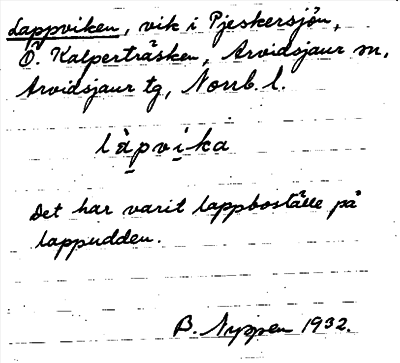 Lappviken, vik i Pjeskersjön,
Ö. Kalperträsken, Arvidsjaur sn,
Arvidsjaur tg, Norrb. l.
làpvika
Det har varit lappboställe på
lappudden.
B. Nyppen 1932.